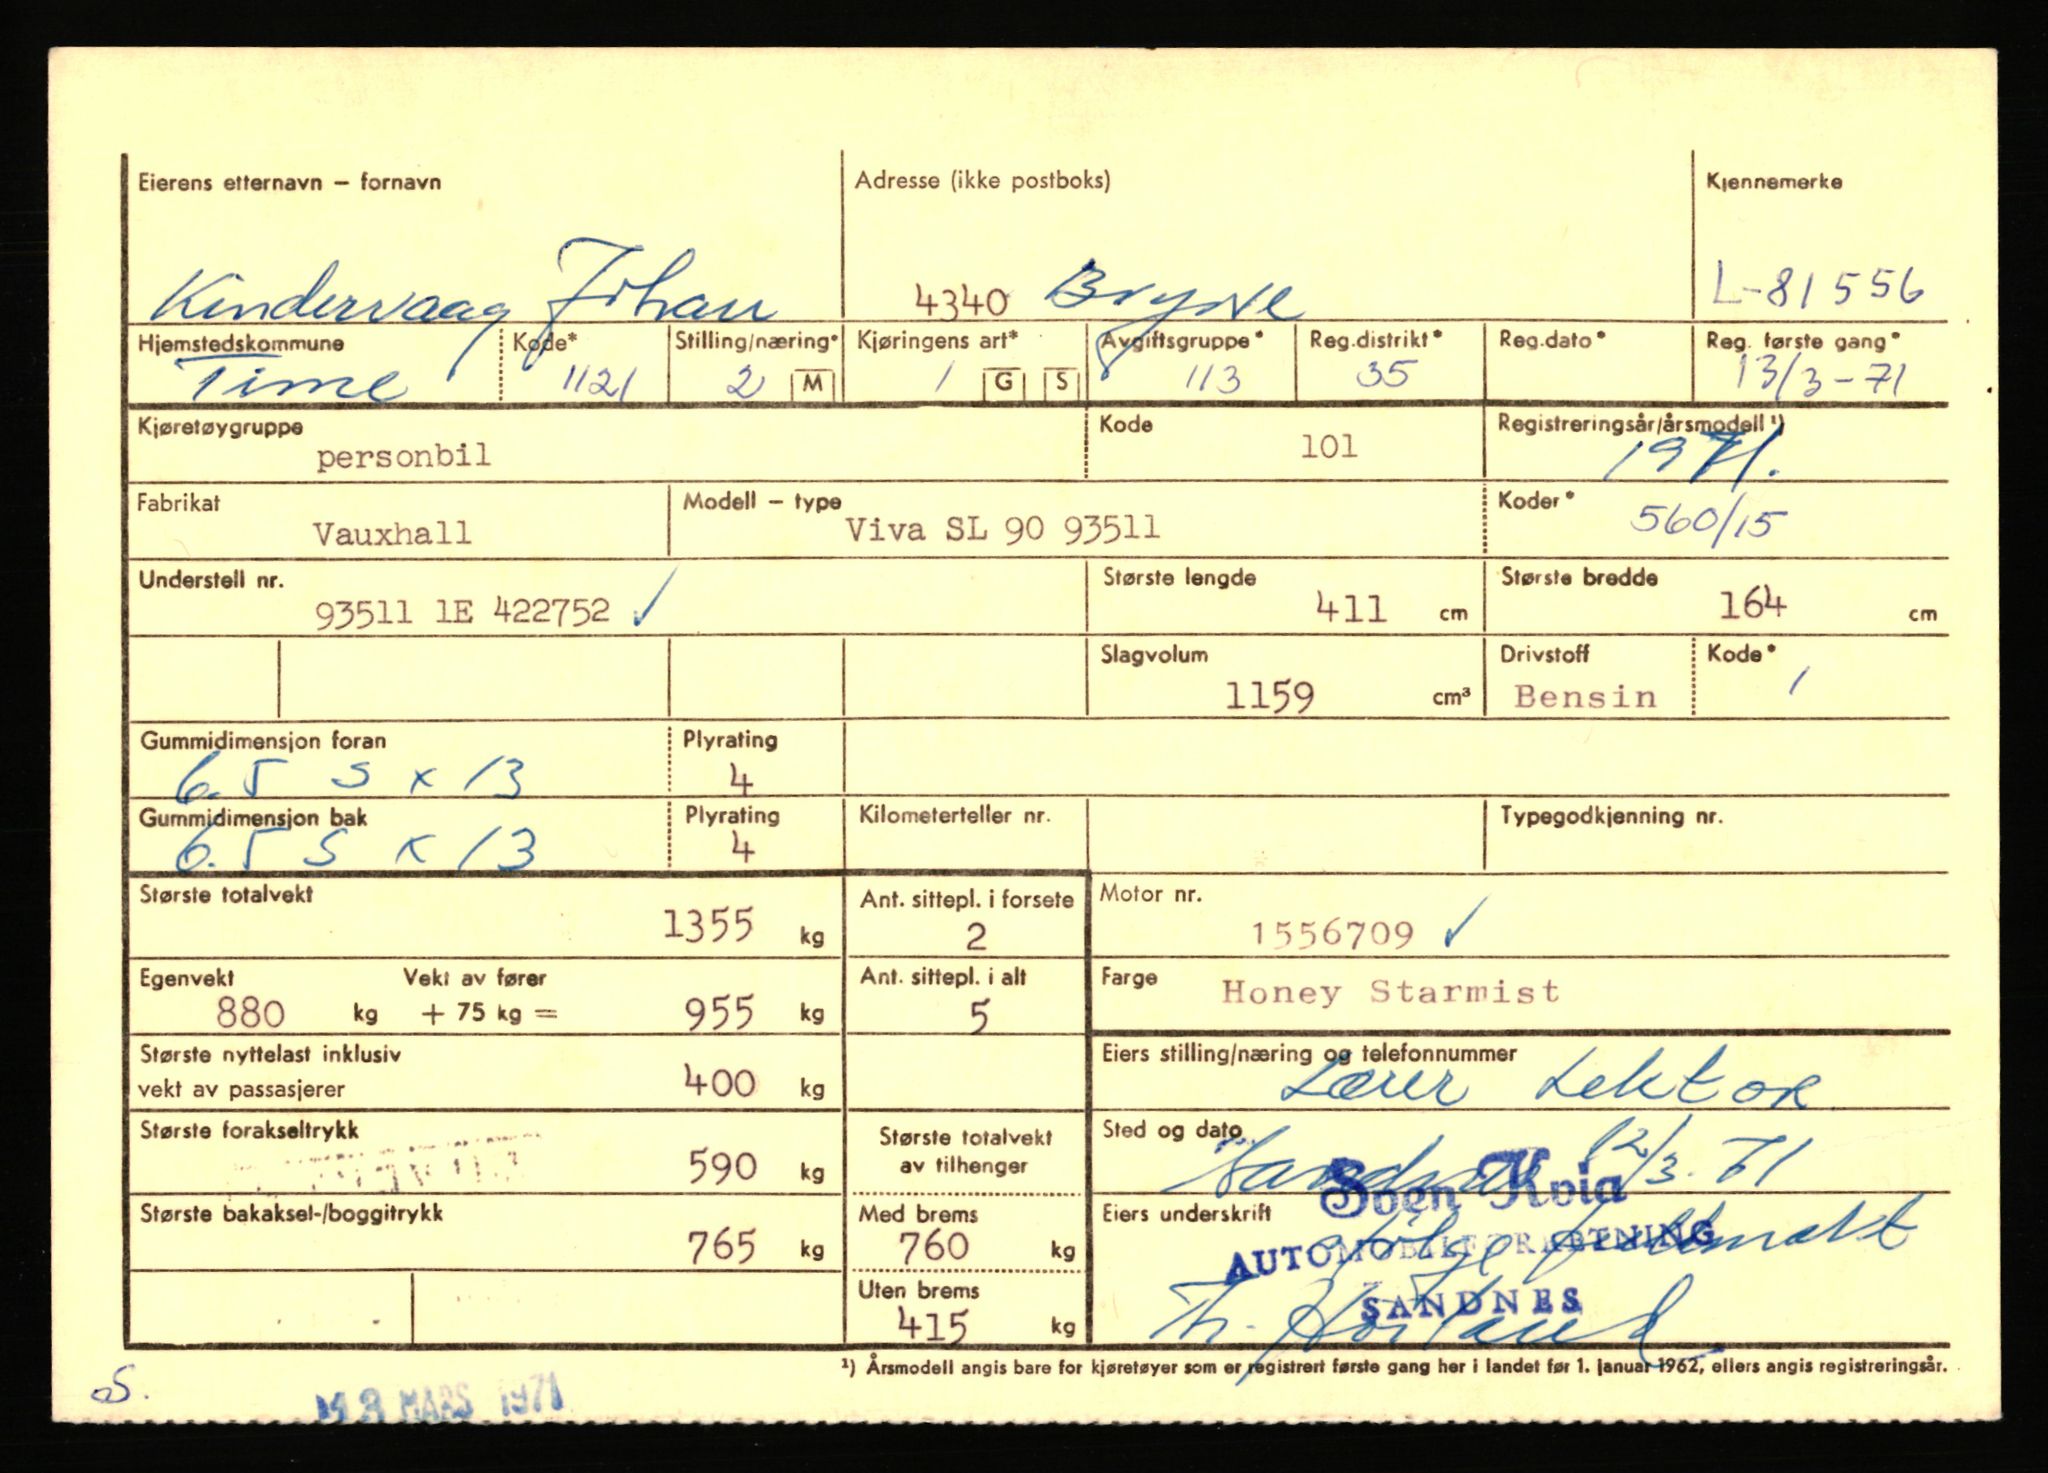 Eierens etternavn – fornavn
Adresse (ikke postboks)
Kjennemerke
Kindervaag Johan
4340 Bryne
L-81556
Hjemstedskommune
Kode*
Stilling/næring*
Kjøringens art*
Avgiftsgruppe*
Reg.distrikt*
Reg.dato*
Reg. første gang*
Time
1121
2 M
1 G S
113
35
13/3-71
Kjøretøygruppe
Kode
Registreringsår/årsmodell ¹)
personbil
101
1971.
Fabrikat
Modell – type
Koder*
Vauxhall
Viva SL 90 93511
560/15
Understell nr.
Største lengde
Største bredde
93511 1E 422752 ✓
411 cm
164 cm
Slagvolum
Drivstoff
Kode*
1159 cm³
Bensin
1
Gummidimensjon foran
Plyrating
6.5 S x 13
4
Gummidimensjon bak
Plyrating
Kilometerteller nr.
Typegodkjenning nr.
6.5 S x 13
4
Største totalvekt
Ant. sittepl. i forsete
Motor nr.
1355 kg
2
1556709 ✓
Egenvekt
Vekt av fører
Ant. sittepl. i alt
Farge
880 kg + 75 kg = 955 kg
5
Honey Starmist
Største nyttelast inklusiv
vekt av passasjerer
400 kg
Eiers stilling/næring og telefonnummer
Lærer Lektor
Største forakseltrykk
590 kg
Største totalvekt
av tilhenger
Sted og dato
Sandnes 12/3.71
Sven Kvia
Største bakaksel-/boggitrykk
765 kg
Med brems
760 kg
Eiers underskrift
AUTOMOBILFORRETNING
SANDNES
Uten brems
415 kg
¹) Årsmodell angis bare for kjøretøyer som er registrert første gang her i landet før 1. januar 1962, ellers angis registreringsår.
S.
MARS 1971